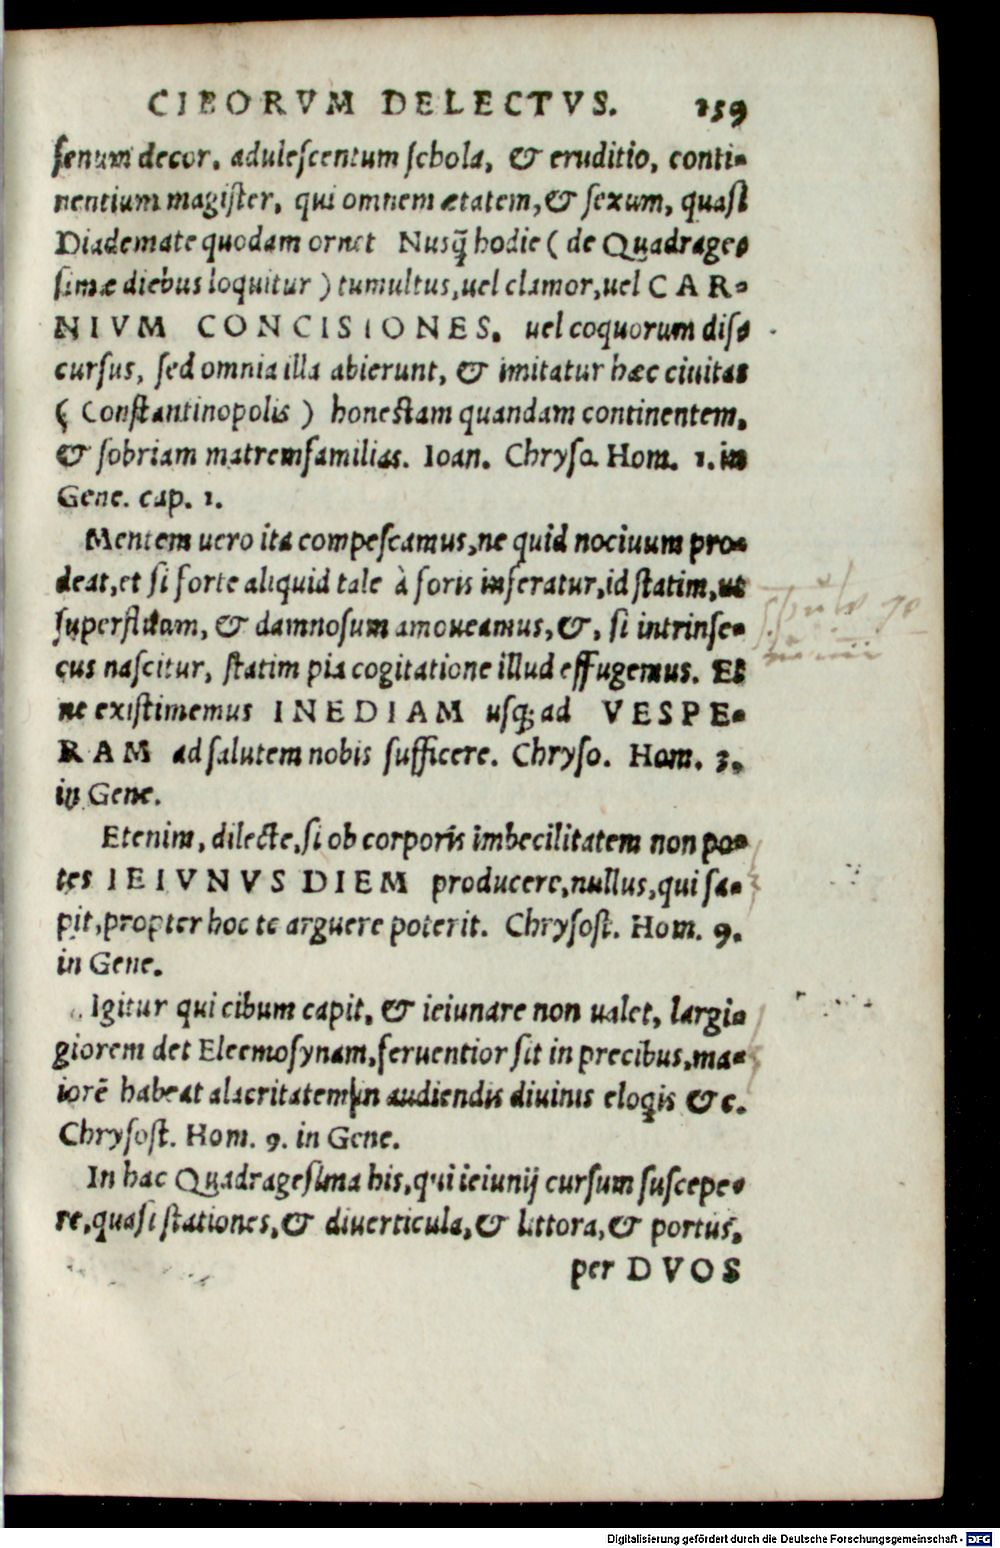 CIBORVM DELECTVS. 159
senum decor, adulescentum schola, & eruditio, conti-
nentium magister, qui omnem ætatem, & sexum, quasi
Diademate quodam ornet Nusq̃ hodie ( de Quadrage-
simæ diebus loquitur ) tumultus, uel clamor, uel CAR-
NIVM CONCISIONES. uel coquorum dis-
cursus, sed omnia illa abierunt, & imitatur hæc ciuitas
( Constantinopolis ) honestam quandam continentem,
& sobriam matremfamilias. Ioan. Chryso. Hom. 1. in
Gene. cap. 1.
Mentem uero ita compescamus, ne quid nociuum pro-
deat, et si forte aliquid tale à foris inferatur, id statim, ut
superfluam, & damnosum amoueamus, &, si intrinse-
cus nascitur, statim pia cogitatione illud effugemus. Et
ne existimemus INEDIAM usq; ad VESPE-
RAM ad salutem nobis sufficere. Chryso. Hom. 3.
in Gene.
Etenim, dilecte, si ob corporis imbecilitatem non po-
tes IEIVNVS DIEM producere, nullus, qui sa-
pit, propter hoc te arguere poterit. Chrysost. Hom. 9.
in Gene.
Igitur qui cibum capit, & ieiunare non ualet, largi-
giorem det Eleemosynam, feruentior sit in precibus, ma-
iorē habeat alacritatem in audiendis diuinis eloq̃is &c.
Chrysost. Hom. 9. in Gene.
In hac Quadragesima his, qui ieiunij cursum suscepe-
re, quasi stationes, & diuerticula, & littora, & portus,
per DVOS
Digitalisierung gefördert durch die Deutsche Forschungsgemeinschaft - DFG